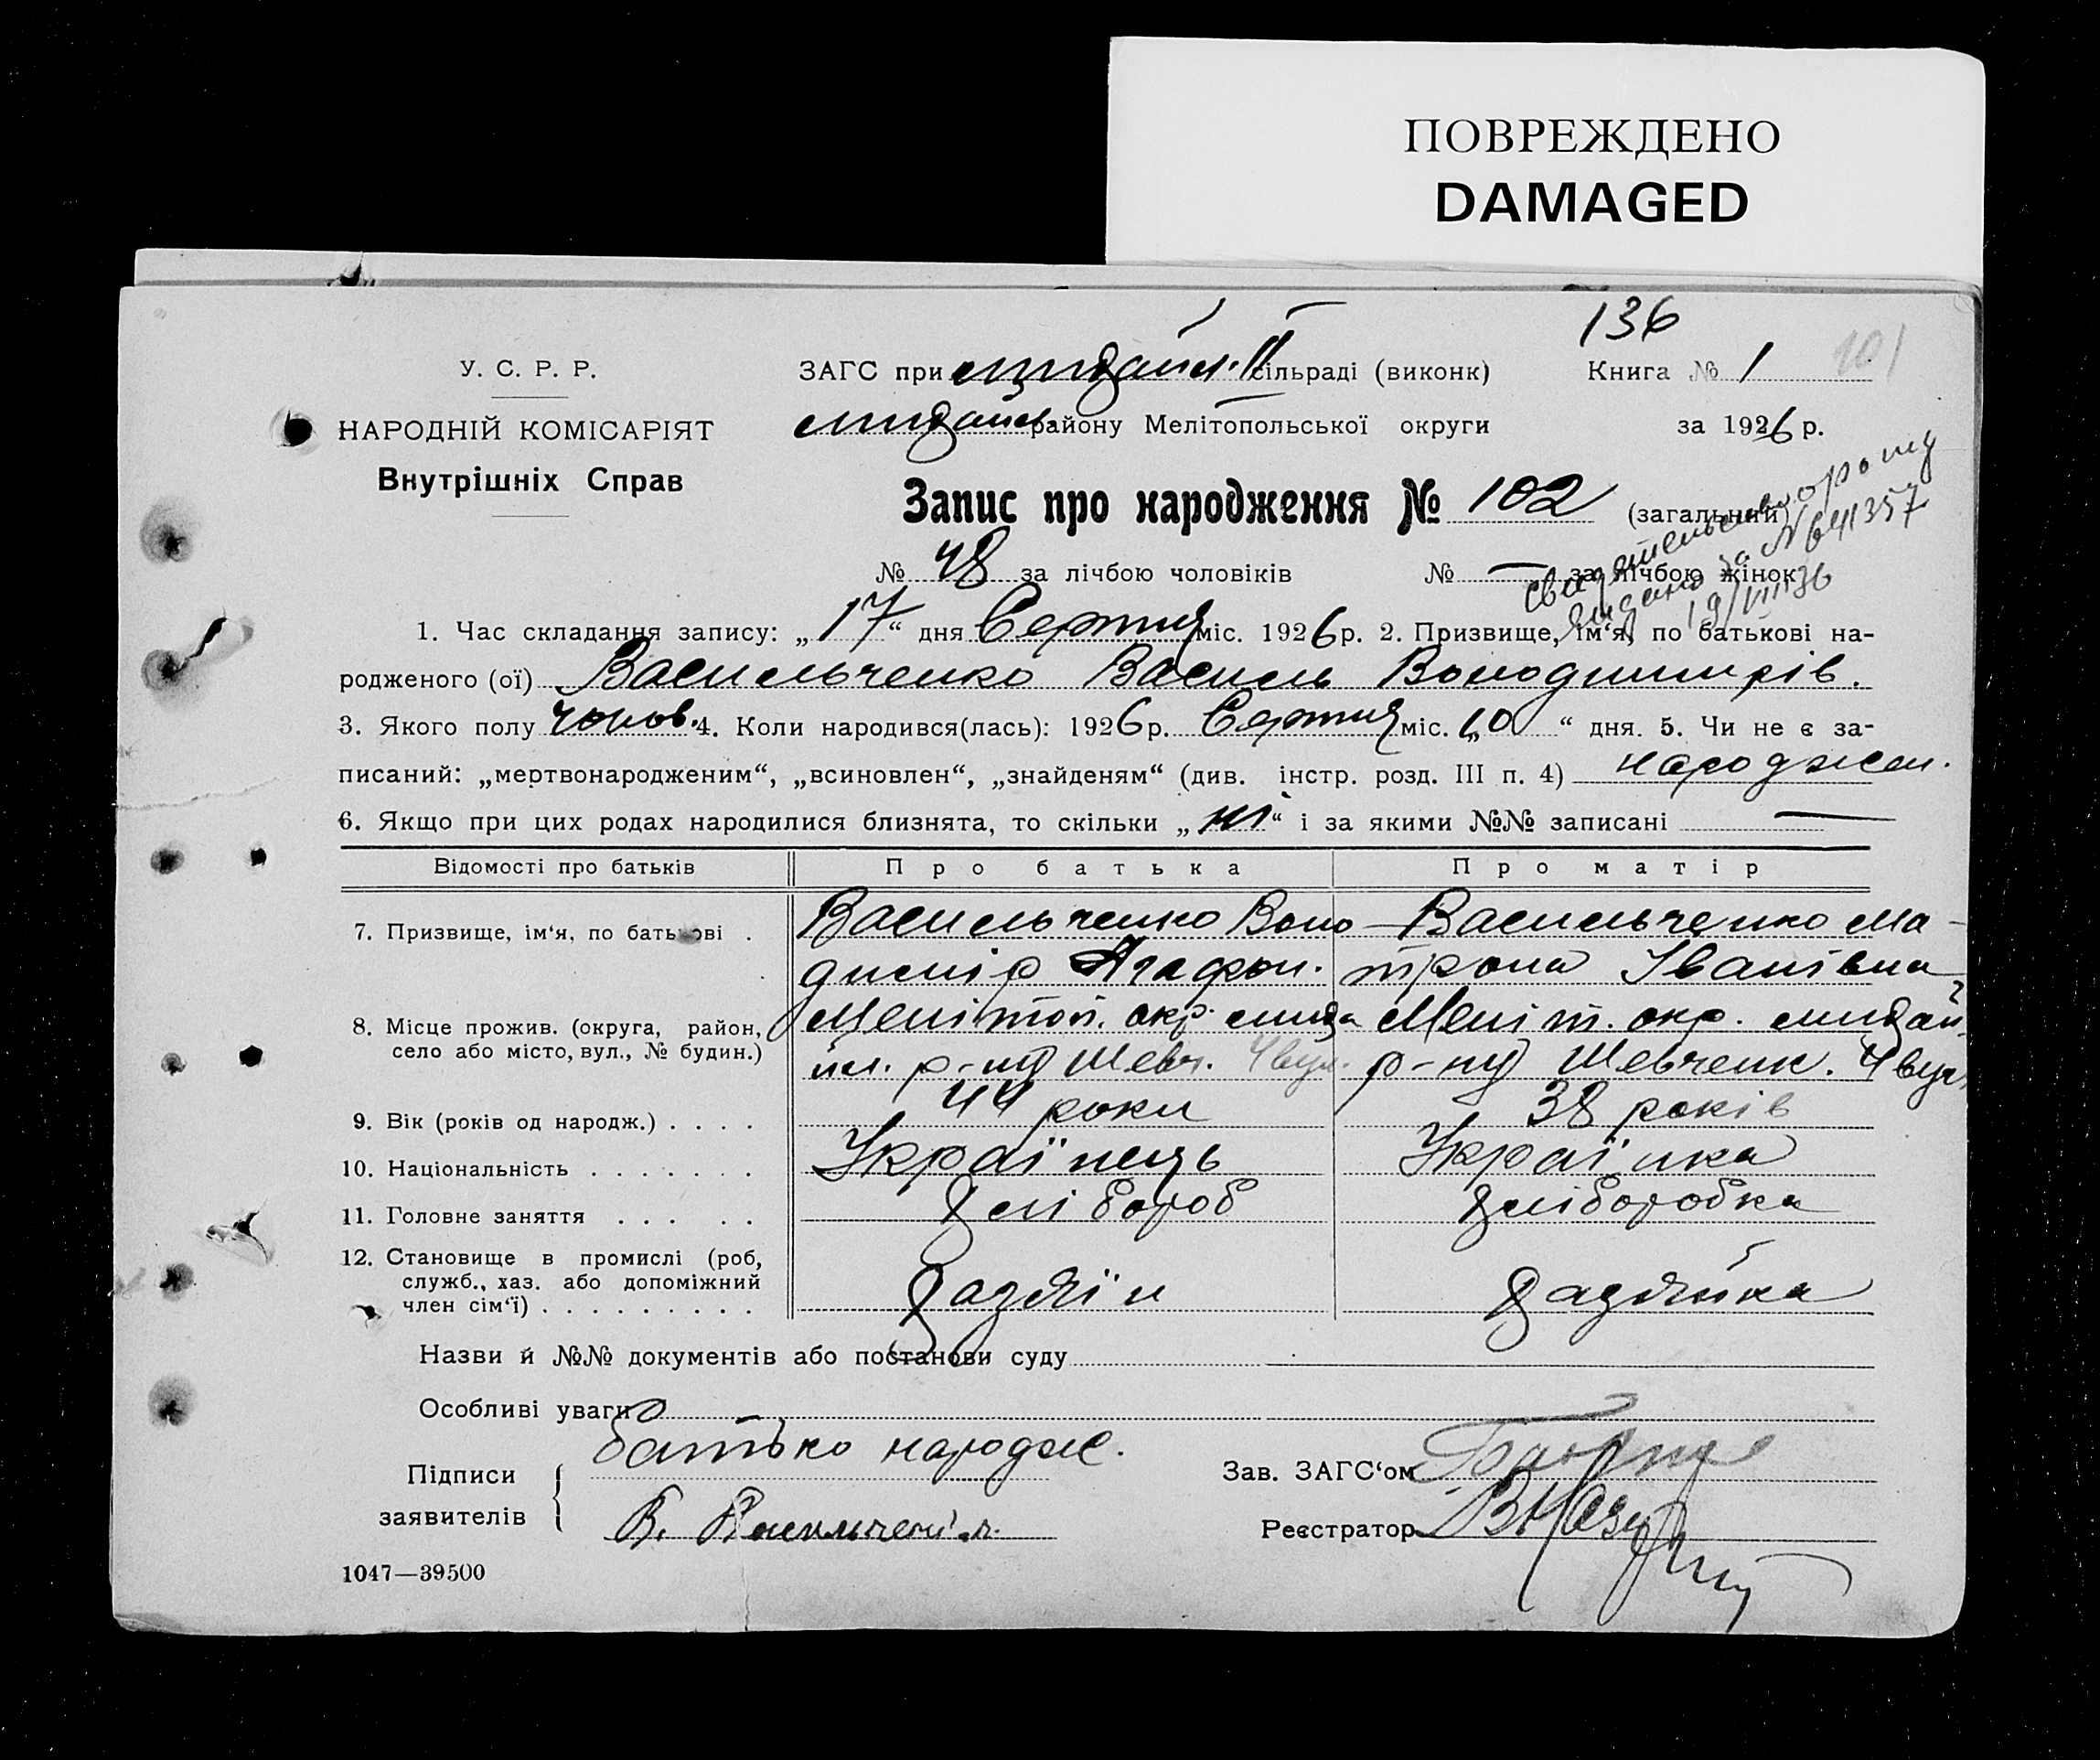 ПОВРЕЖДЕНО
DAMAGED
136
У. С. Р. Р.
ЗАГС при сільраді (виконк)
Книга № 1 101
НАРОДНІЙ КОМІСАРІЯТ
району Мелітопольської округи
за 1926 р.
Внутрішніх Справ
Запис про народження № 102 (загальний)
№ 48 за лічбою чоловіків № — за лічбою жінок
видано за № 641357
19/VIII 36
1. Час складання запису: „17“ дня Серпня міс. 1926 р. 2. Призвище, ім‘я, по батькові на-
родженого (ої) Васильченко Василь Володимирів.
3. Якого полу чолов. 4. Коли народився(лась): 1926 р. Серпня міс. „10“ дня. 5. Чи не є за-
писаний: „мертвонародженим“, „всиновлен“, „знайденям“ (див. інстр. розд. III п. 4) народжен.
6. Якщо при цих родах народилися близнята, то скільки „ні“ і за якими №№ записані —
Відомості про батьків Про батька Про матір
7. Призвище, ім‘я, по батькові . Васильченко Воло Васильченко Ма-
димір Агафон. трона Іванівна
8. Місце прожив. (округа, район, село або місто, вул., № будин.) Меліточ. окр. Меліт. окр.
р-ну Шевч. 4 вул. р-ну Шевченк. 4 вул.
9. Вік (років од народж.) . . . . 44 роки 38 років
10. Національність . . . . . . . Українець Українка
11. Головне заняття . . . . . Хлібороб Хліборобка
12. Становище в промислі (роб, служб., хаз. або допоміжний член сім‘ї) . . . . . . . . . Хазяїн Хазяйка
Назви й №№ документів або постанови суду
Особливі уваги
Підписи заявителів батько народж.
В. Васильчен
Зав. ЗАГС‘ом
Реєстратор
1047—39500